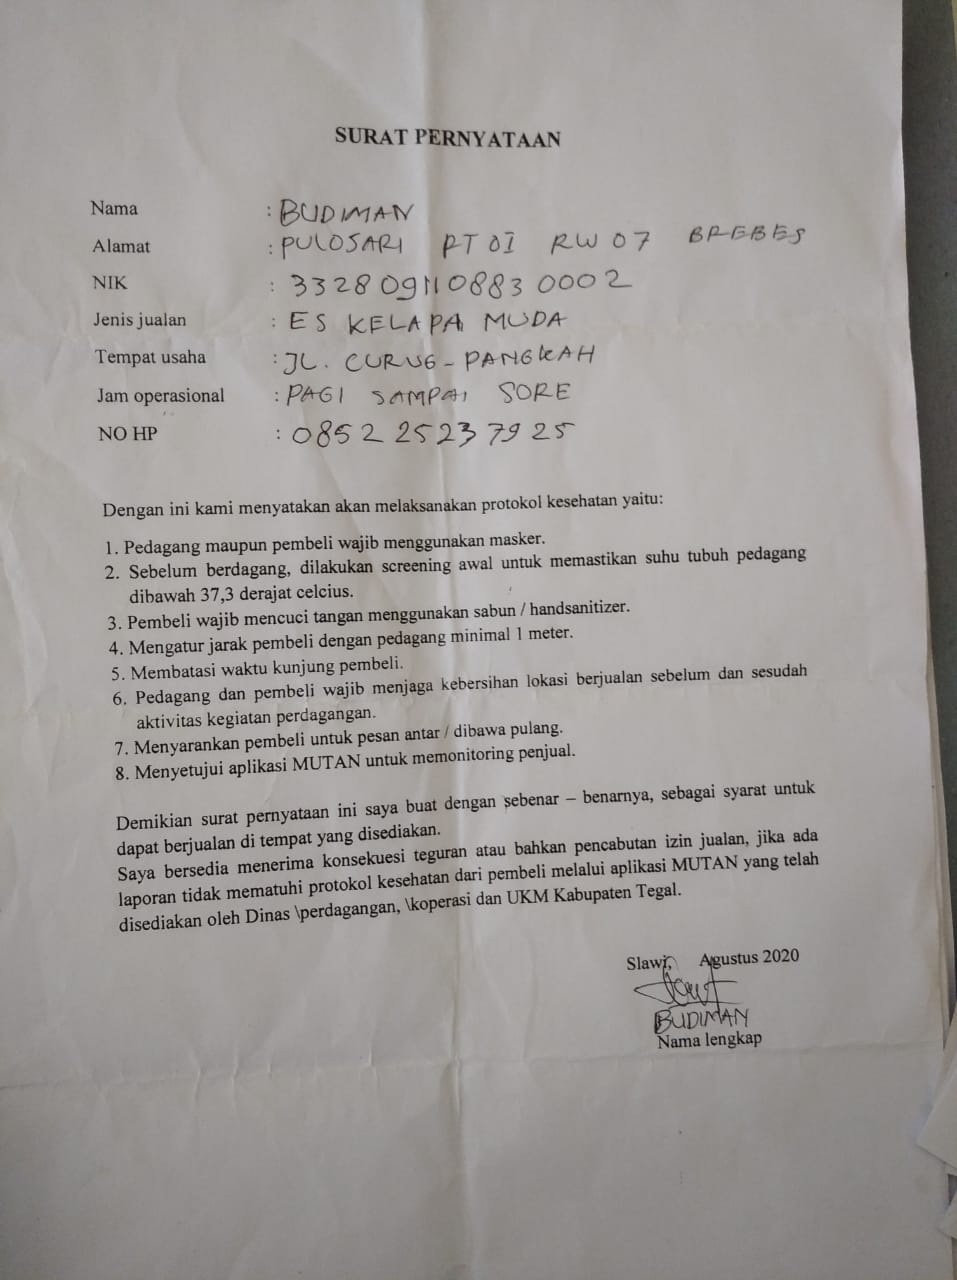 SURAT PERNYATAAN
Nama : BUDIMAN
Alamat : PULOSARI RT 01 RW 07 BREBES
NIK : 3328091108830002
Jenis jualan : ES KELAPA MUDA
Tempat usaha : JL. CURUG - PANGKAH
Jam operasional : PAGI SAMPAI SORE
NO HP : 085225237925
Dengan ini kami menyatakan akan melaksanakan protokol kesehatan yaitu:
1. Pedagang maupun pembeli wajib menggunakan masker.
2. Sebelum berdagang, dilakukan screening awal untuk memastikan suhu tubuh pedagang
dibawah 37,3 derajat celcius.
3. Pembeli wajib mencuci tangan menggunakan sabun / handsanitizer.
4. Mengatur jarak pembeli dengan pedagang minimal 1 meter.
5. Membatasi waktu kunjung pembeli.
6. Pedagang dan pembeli wajib menjaga kebersihan lokasi berjualan sebelum dan sesudah
aktivitas kegiatan perdagangan.
7. Menyarankan pembeli untuk pesan antar / dibawa pulang.
8. Menyetujui aplikasi MUTAN untuk memonitoring penjual.
Demikian surat pernyataan ini saya buat dengan sebenar – benarnya, sebagai syarat untuk
dapat berjualan di tempat yang disediakan.
Saya bersedia menerima konsekuesi teguran atau bahkan pencabutan izin jualan, jika ada
laporan tidak mematuhi protokol kesehatan dari pembeli melalui aplikasi MUTAN yang telah
disediakan oleh Dinas \perdagangan, \koperasi dan UKM Kabupaten Tegal.
Slawi, Agustus 2020
BUDIMAN
Nama lengkap